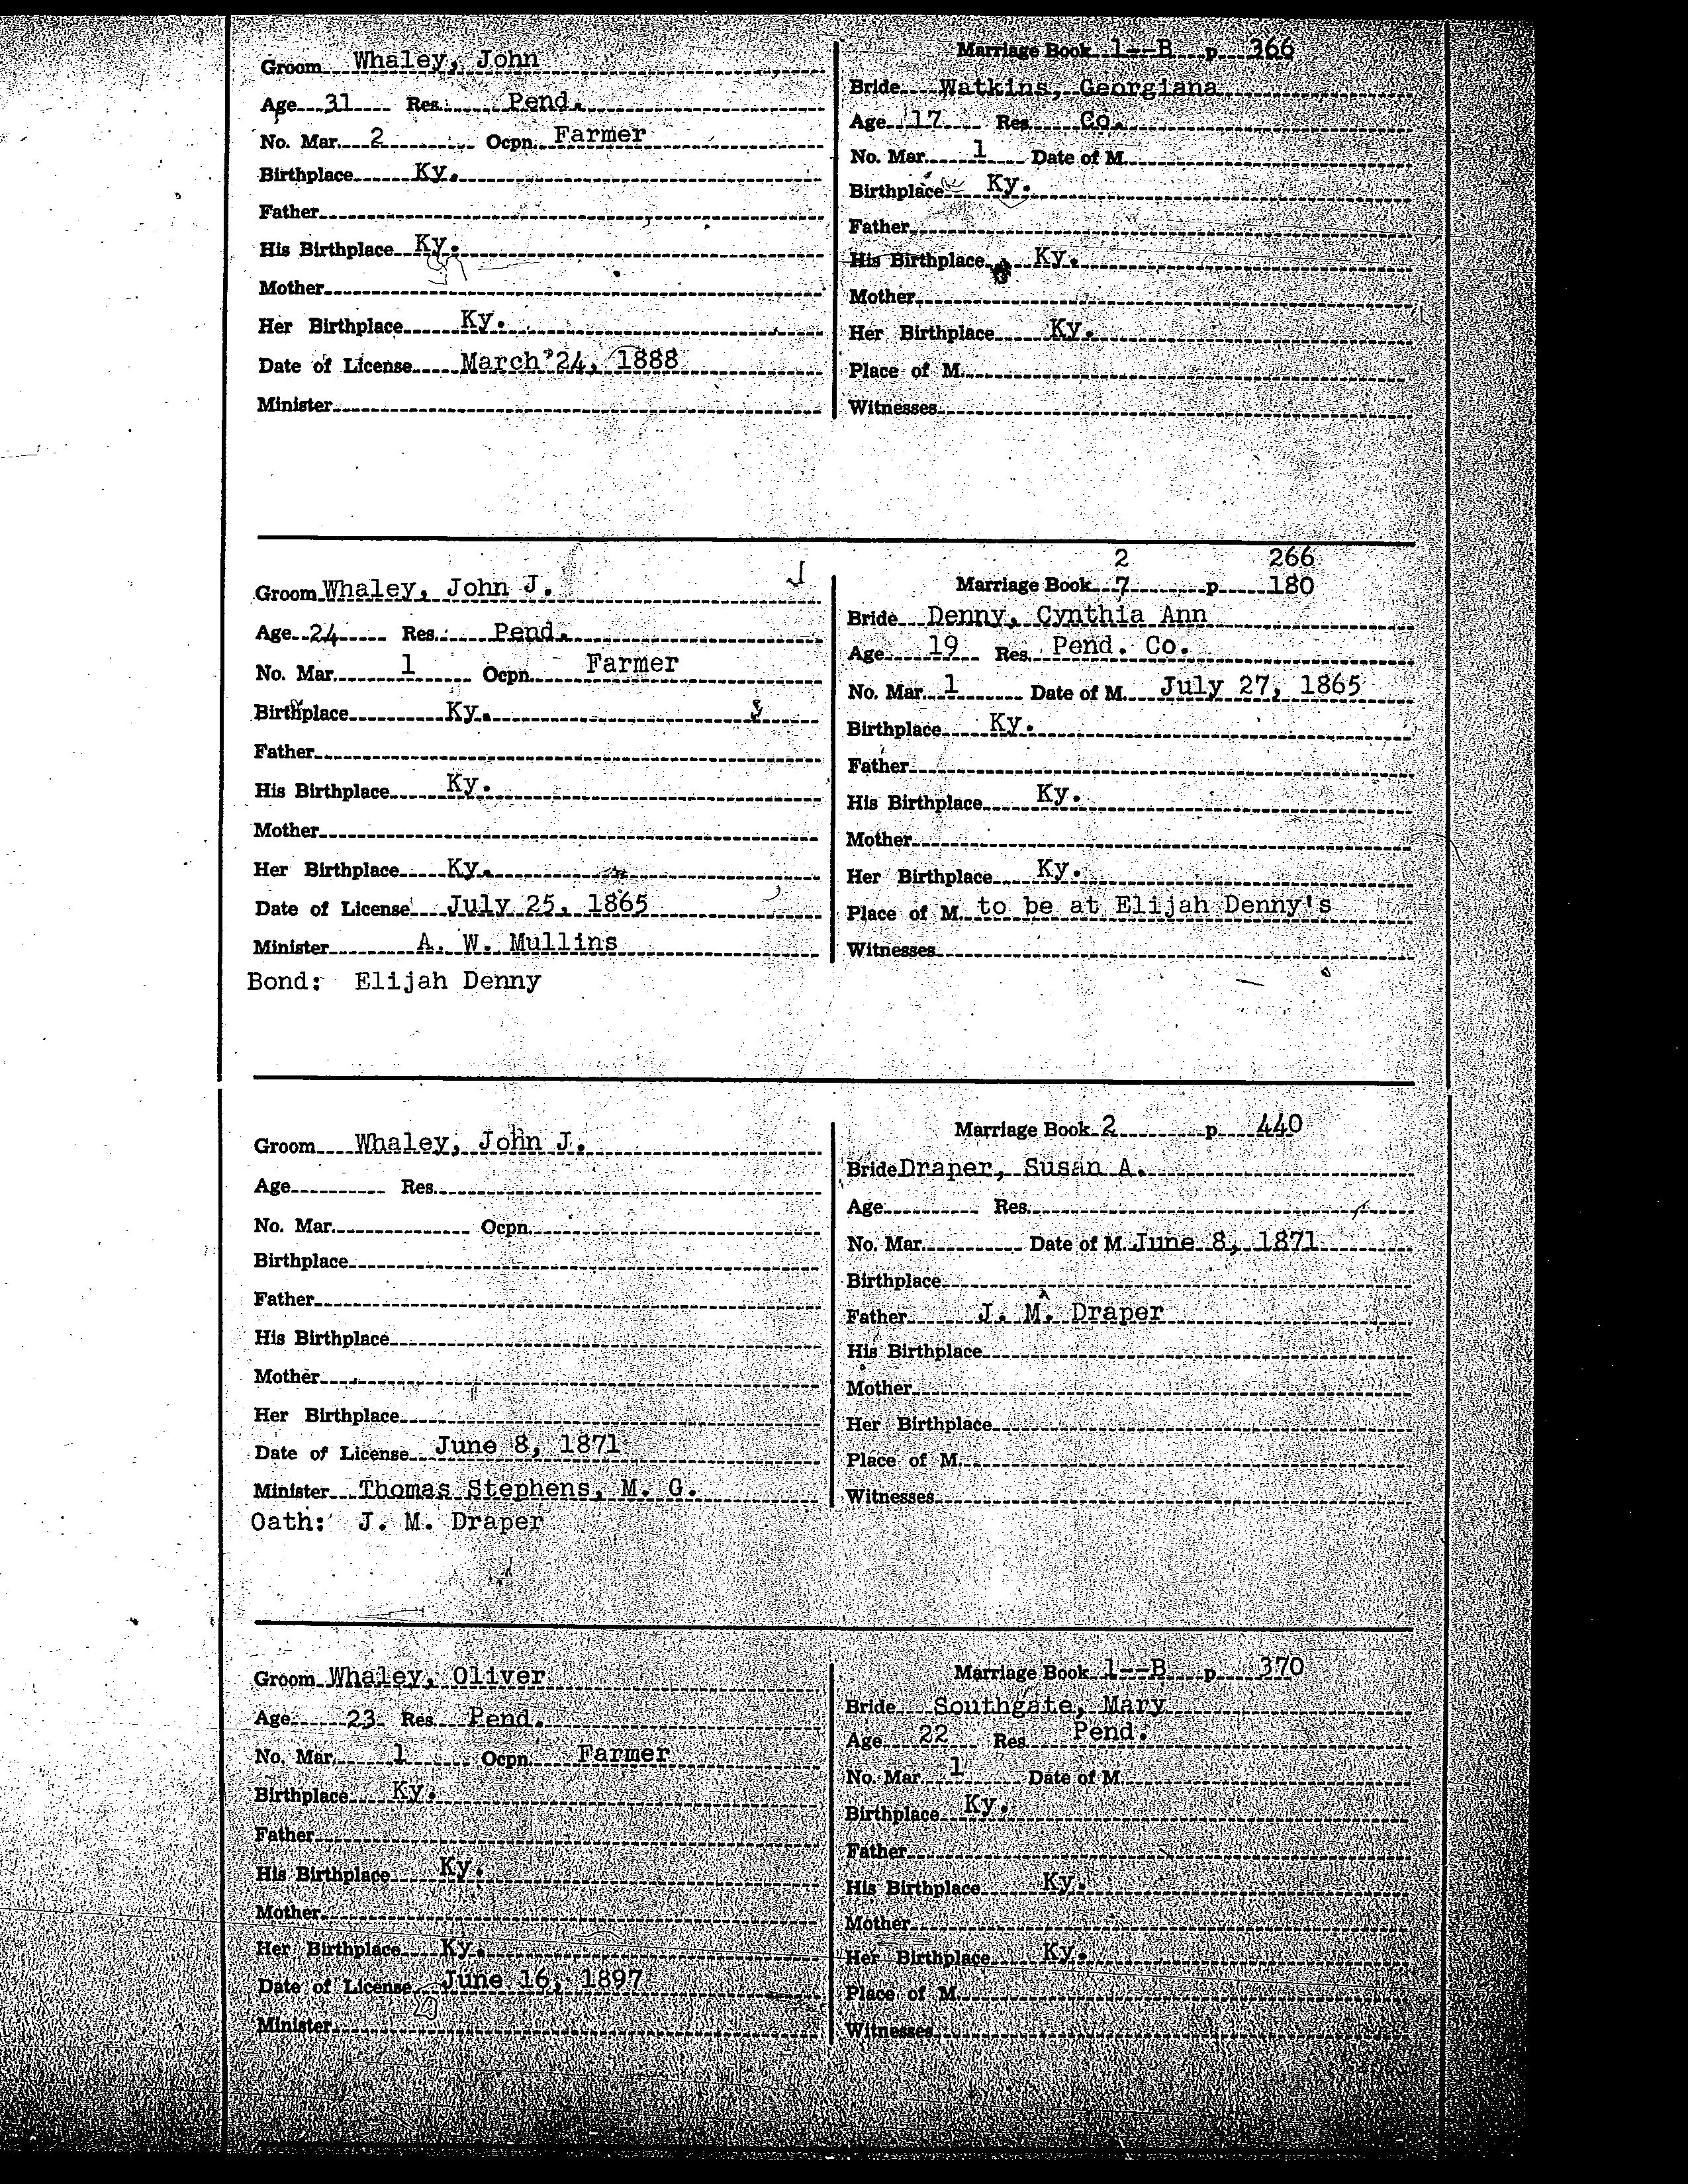 Groom Whaley, John
Age 31 Res. Pend.
No. Mar. 2 Ocpn. Farmer
Birthplace Ky.
Father
His Birthplace Ky.
Mother
Her Birthplace Ky.
Date of License March 24, 1888
Minister
Marriage Book 1--B p. 366
Bride Watkins, Georgiana
Age 17 Res. Co.
No. Mar. 1 Date of M.
Birthplace Ky.
Father
His Birthplace Ky.
Mother
Her Birthplace Ky.
Place of M.
Witnesses
Groom Whaley, John J.
Age 24 Res. Pend.
No. Mar. 1 Ocpn. Farmer
Birthplace Ky.
Father
His Birthplace Ky.
Mother
Her Birthplace Ky.
Date of License July 25, 1865
Minister A. W. Mullins
Bond: Elijah Denny
2 266
Marriage Book 7 p. 180
Bride Denny, Cynthia Ann
Age 19 Res. Pend. Co.
No. Mar. 1 Date of M. July 27, 1865
Birthplace Ky.
Father
His Birthplace Ky.
Mother
Her Birthplace Ky.
Place of M. to be at Elijah Denny's
Witnesses
Groom Whaley, John J.
Age Res.
No. Mar. Ocpn.
Birthplace
Father
His Birthplace
Mother
Her Birthplace
Date of License June 8, 1871
Minister Thomas Stephens, M. G.
Oath: J. M. Draper
Marriage Book 2 p. 440
Bride Draper, Susan A.
Age Res.
No. Mar. Date of M. June 8, 1871
Birthplace
Father J. M. Draper
His Birthplace
Mother
Her Birthplace
Place of M.
Witnesses
Groom Whaley, Oliver
Age 23 Res. Pend.
No. Mar. 1 Ocpn. Farmer
Birthplace Ky.
Father
His Birthplace Ky.
Mother
Her Birthplace Ky.
Date of License June 16, 1897
Minister
Marriage Book 1--B p. 370
Bride Southgate, Mary
Age 22 Res. Pend.
No. Mar. 1 Date of M.
Birthplace Ky.
Father
His Birthplace Ky.
Mother
Her Birthplace Ky.
Place of M.
Witnesses